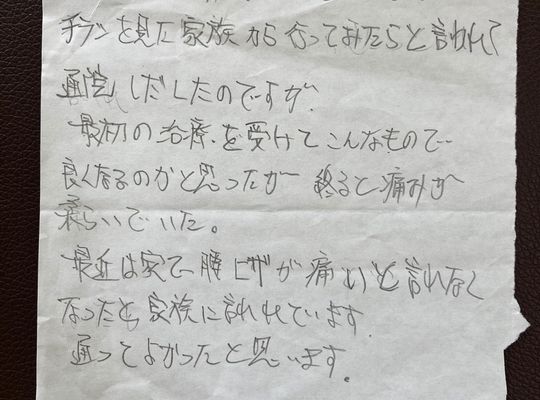 チラシを見た家族から行ってみたらと言われて
通院しだしたのですが、
最初の治療を受けてこんなもので
良くなるのかと思ったが 終ると痛みが
柔らいでいた。
最近は家で腰ヒザが痛いと言れなく
なったと、家族に言れれています
通ってよかったと思います。